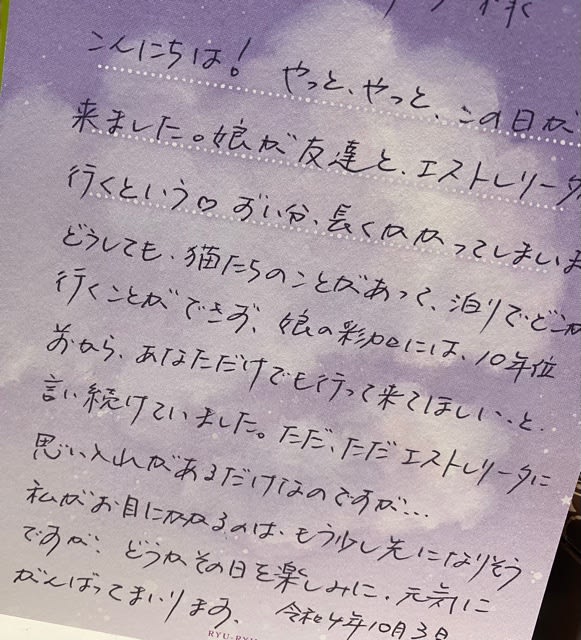 様
こんにちは! やっと、やっと、この日が
来ました。娘が友達と、エストレリータ
行くという♡ ずい分、長くかかってしまいま
どうしても、猫たちのことがあって、泊りでどこか
行くことができず、娘の彩加には、10年位
前から、あなただけでも行って来てほしい、と、
言い続けていました。ただ、ただエストレリータに
思い入れがあるだけなのですが…
私がお目にかかるのは、もう少し先になりそう
ですが、どうかその日を楽しみに、元気に
がんばってまいります。 令和4年10月3日
RYU-RYU